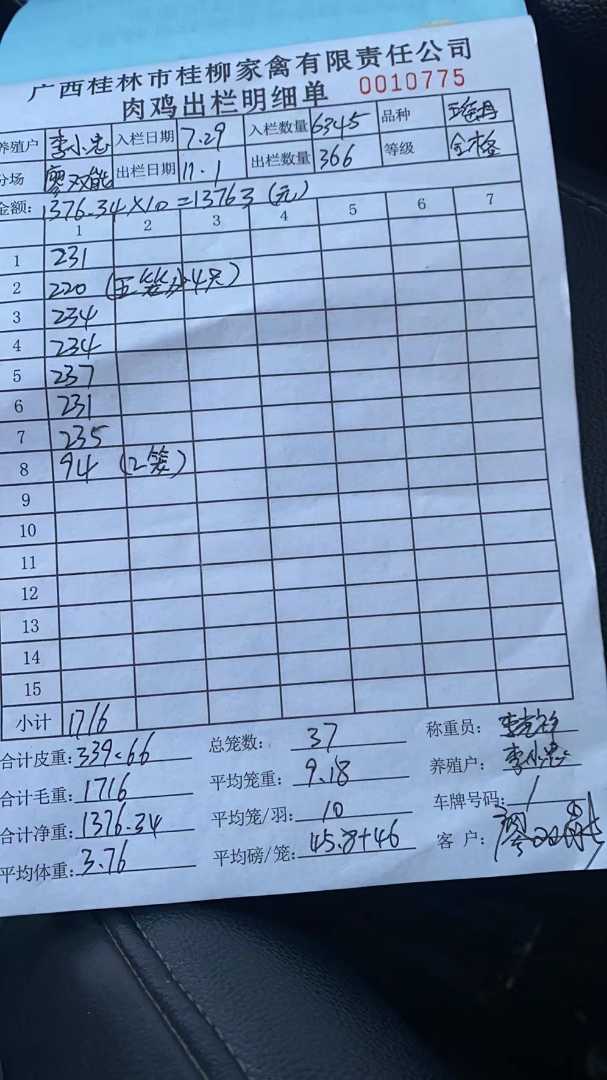 广西桂林市桂柳家禽有限责任公司
肉鸡出栏明细单 0010775
养殖户 李小忠 入栏日期 7.29 入栏数量 6345 品种
分场 廖双能 出栏日期 11.1 出栏数量 366 等级 合格
金额: 1376.34×10=13763(元)
1 2 3 4 5 6 7
1 231
2 220 (五笼 4只)
3 234
4 234
5 237
6 231
7 235
8 94 (2笼)
9
10
11
12
13
14
15
小计 1716
合计皮重: 339.66 总笼数: 37 称重员:
合计毛重: 1716 平均笼重: 9.18 养殖户: 李小忠
合计净重: 1376.34 平均笼/羽: 10 车牌号码: /
平均体重: 3.76 平均磅/笼: 45.8+46 客 户: